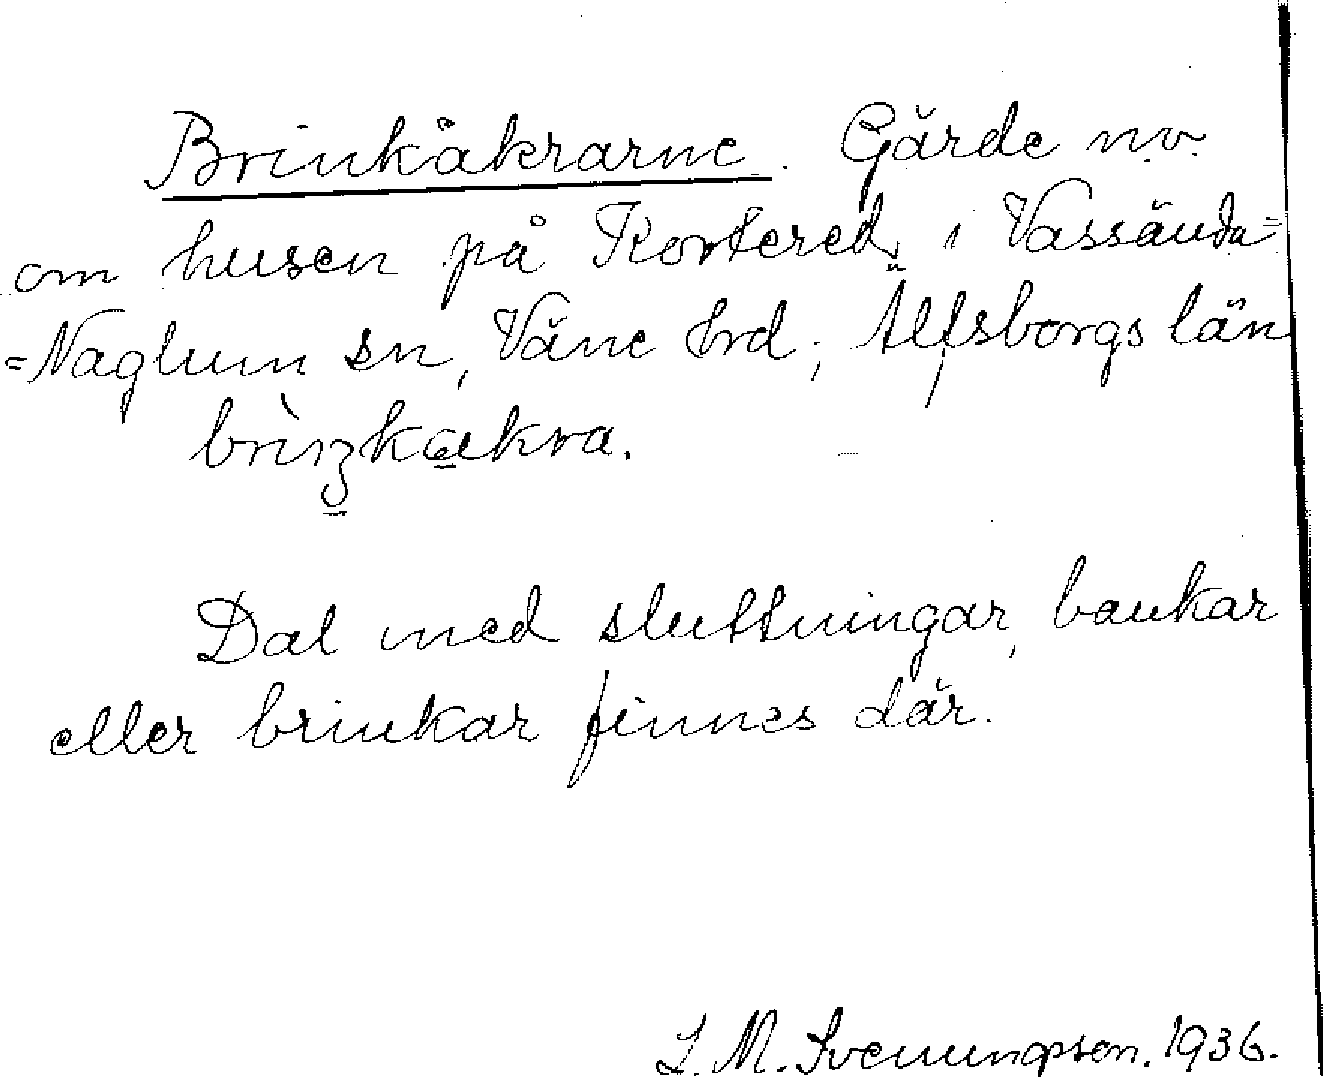 Brinkåkrarne. Gärde n.v.
om husen på Kortered i Vassända=
=Naglum sn, Väne hrd, Älfsborgs län
brìŋkakra.
Dal med sluttningar, bankar
eller brinkar finnes där.
L. M. Svenungsson. 1936.